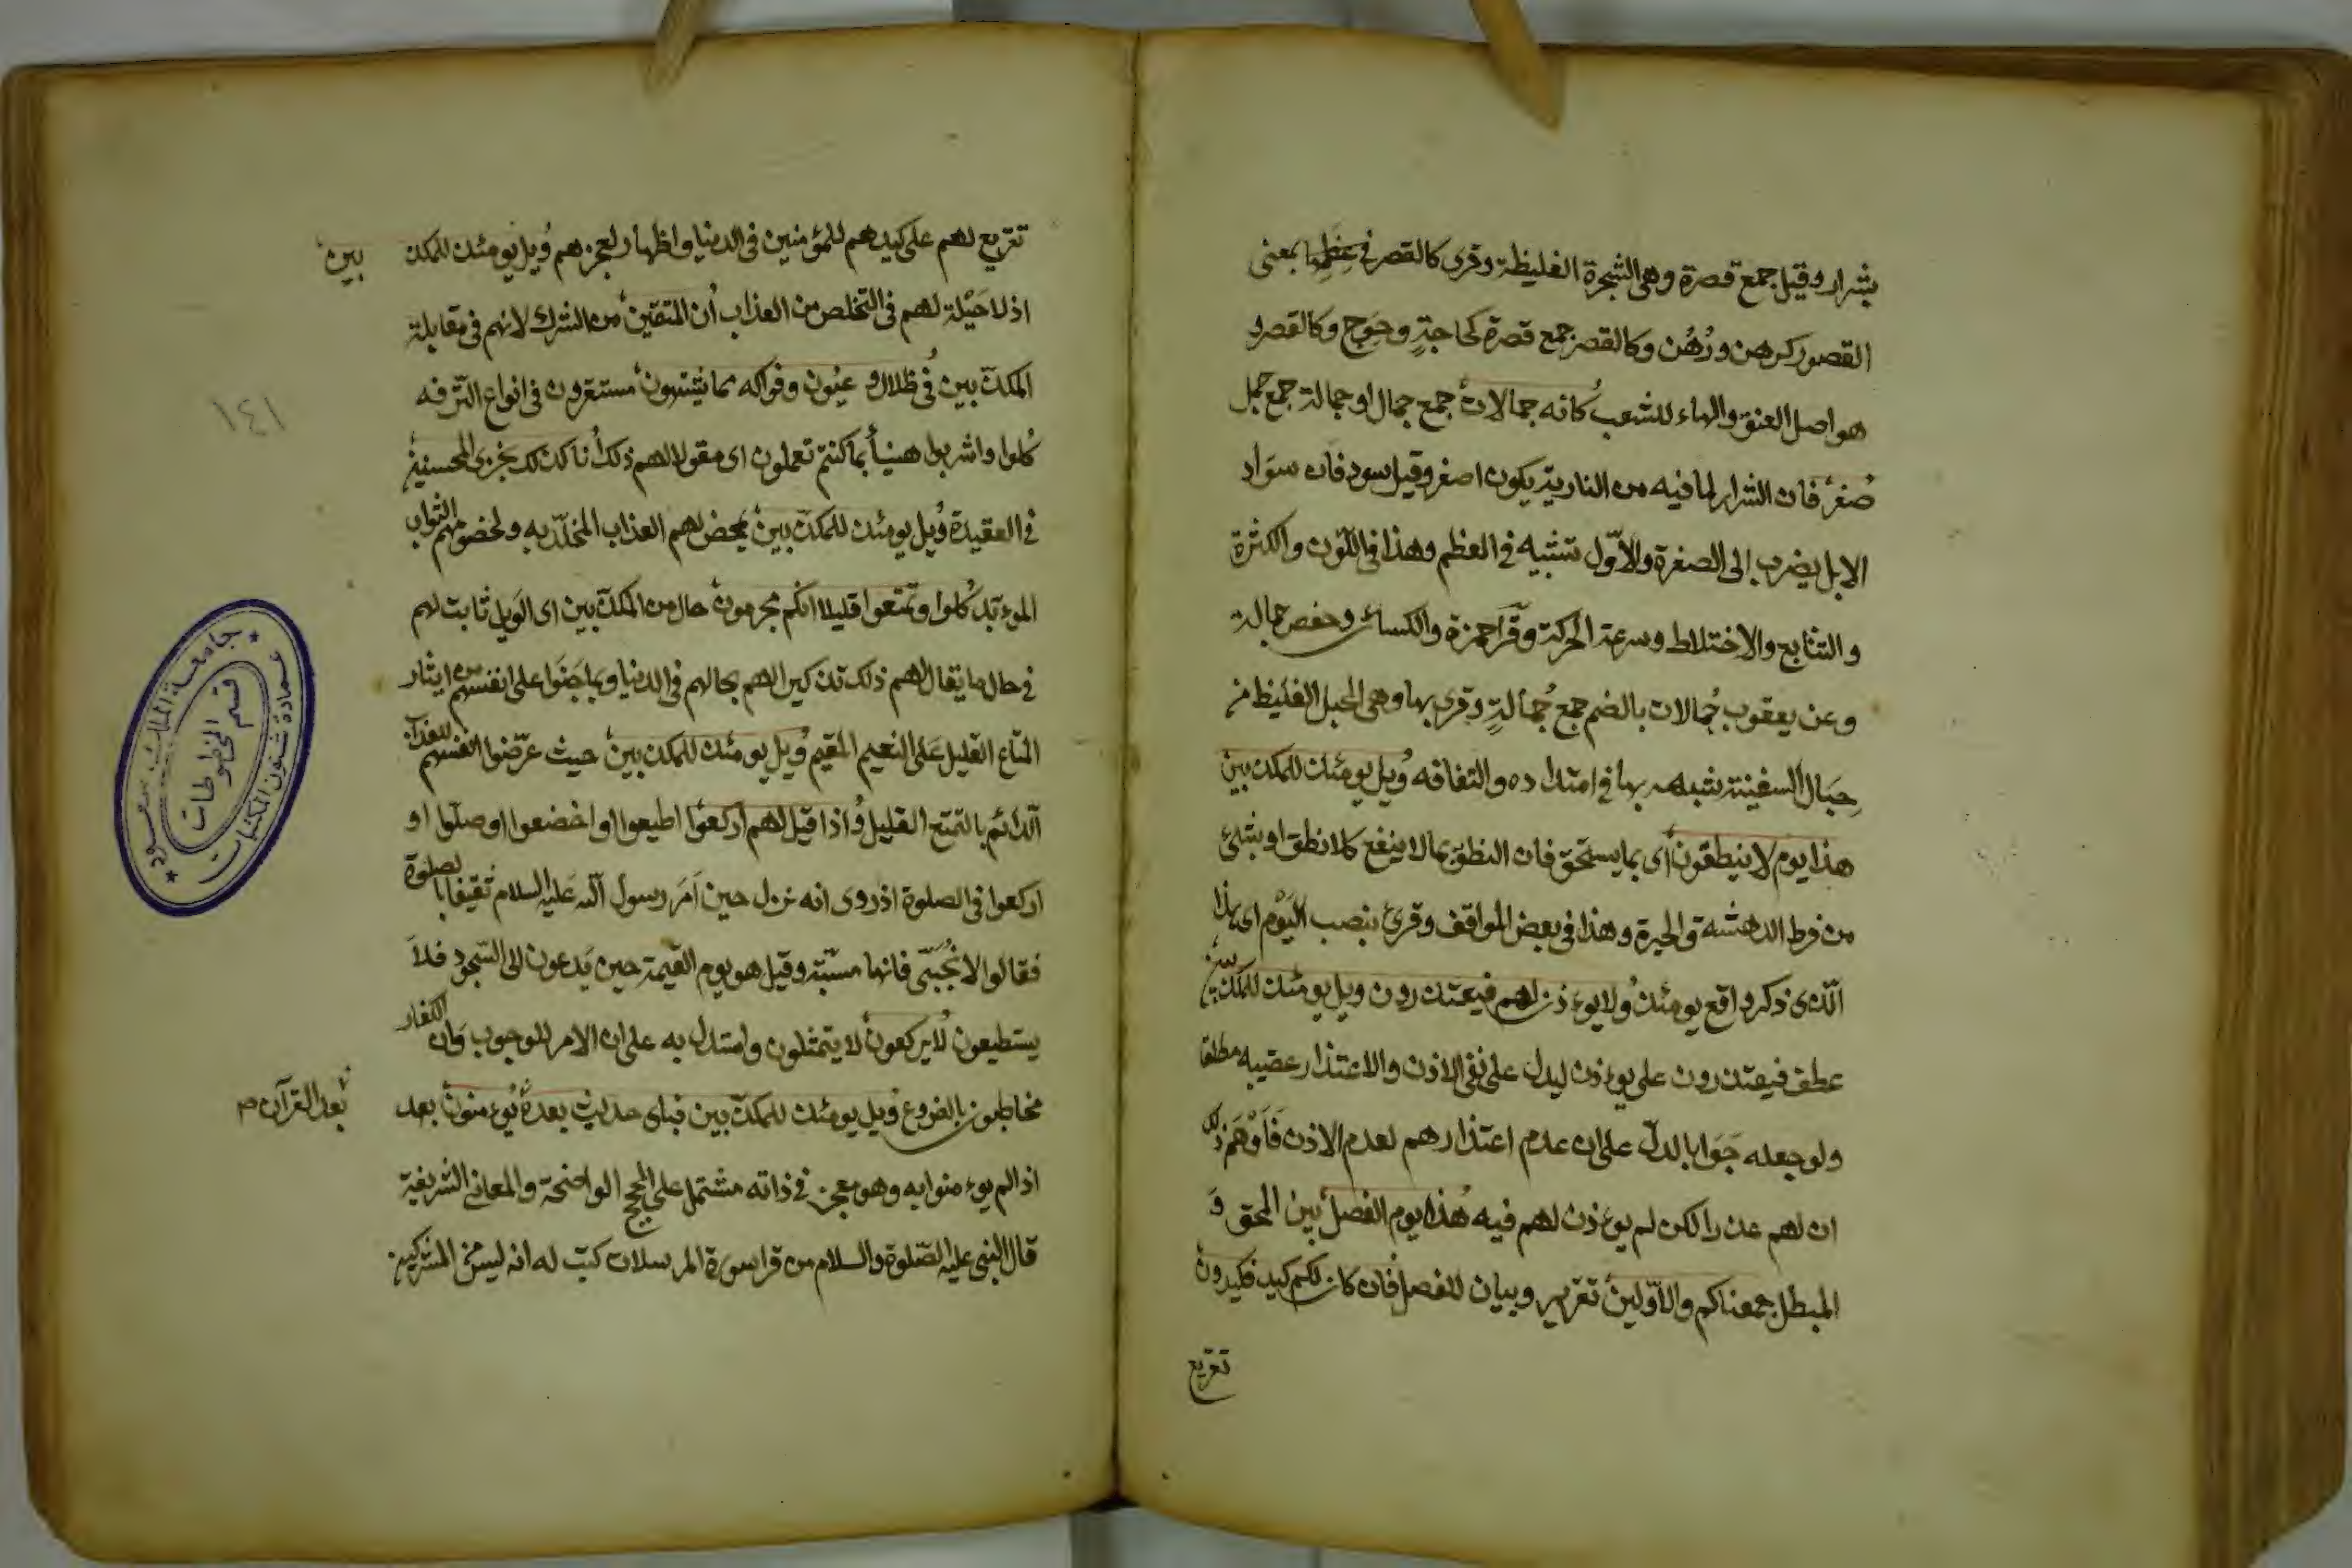 بشرار وقيل جمع قصرة وهى الشجرة الغليظة وقرى كالقصر فى عظمها بمعنى
القصور كرهن ورُهُن وكالقصر جمع قصرة كحاجةٍ وحِوَج وكالقصرو
هو اصل العنق والهاء للشعب كانه جمالات جمع جمال او جمالة جمع جمل
صُفر فان الشرار لما فيه من النارية يكون اصفر وقيل سود فان سواد
الابل يضرب الى الصفرة والاوّل تشبيه فى العظم وهذا فى اللون والكثرة
والتتابع والاختلاط وسرعة الحركة وقرأ حمزة والكسائى وحفص جمالة
وعن يعقوب جُمالات بالضم جمع جُمالةٍ وقرى بها وهى الحبل الغليظ من
حِبَال السفينة شبهه بها فى امتداده والتفافه وُيل يومئذ للمكذبين
هذا يوم لا ينطقون اى بما يستحق فان النطق بما لا ينفع كلا نطق او بشئ
من فرط الدهشة والحيرة وهذا فى بعض المواقف وقرئ بنصب اليَوْم اى هذا
الّذى ذكر واقع يومئذ ولا يوءذن لهم فيعتذرون ويل يومئذ للمكذبين
عطف فيعتذرون على يوءذن ليدل على نفى الاذن والاعتذار عقيبه مطلقا
ولو جعله جَوَابا لدلّ على ان عدم اعتذارهم لعدم الاذن فَاَوْهَمَ ذلك
ان لهم عذرا لكن لم يوءذن لهم فيه هُذا يوم الفصل بين المحق وَ
المبطل جمعناكم والاوّلين تقرير وبيان للفصل فان كان لكم كيد فكيدون
تقريع
تقريع لهم على كيدهم للمؤمنين فى الدنيا واظهار لعجزهم وُيل يومئذ للمكذ
بين
اذ لا حَيْلة لهم فى التخلص من العذاب اُن المتقين من الشرك لانهم فى مقابلة
المكذّبين فُى ظلال وعيُون وفواكه مما يُشتهون مستقرون فى انواع الترفه
كُلوا واشربوا هنيأ بما كنتم تعملون اى مقولا لهم ذلك اُنا كذلك نجزى المحسنين
فى العقيدة وُيل يومئذ للمكذّبين يمحض لهم العذاب المخلّد به ولخصومهم الثواب
الموءبّد كُلوا وتمتعوا قليلا انكم مجرمون حال من المكذّبين اى الوَيل ثابت لهم
فى حال ما يقال لهم ذلك تذكيرا لهم بحالهم فى الدنيا وبما جَنَوا على انفسهم من ايثار
المتاع القليل عَلى النعيم المقيم وُيل يومئذ للمكذبين حيث عرّضوا انفسهم للعذاب
الدائم بالتمتع القليل وُاذا قيل لهم اركعوا اطيعوا او اخضعوا او صلّوا او
اركعوا فى الصلوة اذ روى انه نزل حين اَمَرَ رسول الله عَليه السلام ثقيفا بالصلوة
فقالوا لا نُجَبّى فانها مسّبة وقيل هو يوم القيمة حين يَدعون الى السّجود فلاَ
يستطيعون لُا يركعون لا يتمثلون واستدل به على ان الامر للوجوب وَان الكفار
مخاطبون بالفروع وُيل يومئذ للمكذّبين فباى حديث بعدهُ يُوءمنون بعد
بعد القرآن ص
اذا لم يوءمنوا به وهو معجز فى ذاته مشتمل على الحجج الواضحة والمعانى الشريفة
قال النبى عليه الصّلوة والسلام من قرا سورة المرسلات كتب له انه ليس من المشركين
١٤١
جامعة الملك سعود
عمادة شئون المكتبات
قسم المخطوطات